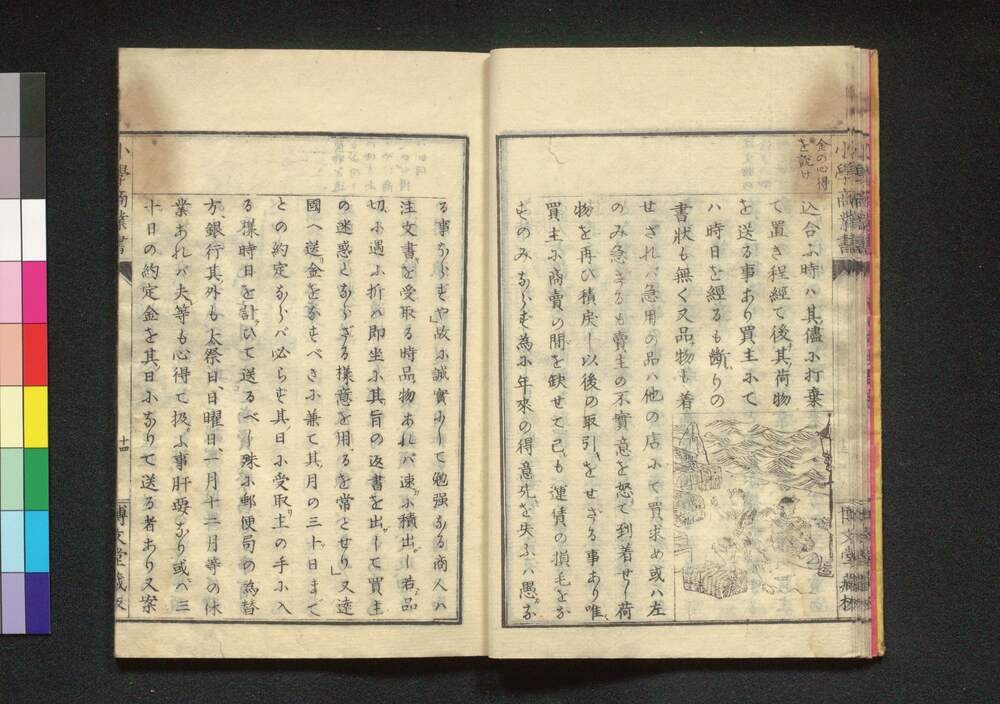 金の心得
を説け
込合ふ時ハ其儘に打棄
て置き程經て後其荷物
を送る事あり買主にて
ハ時日を經るも斷りの
書状も無く又品物も着
せざれバ急用の品ハ他の店にて買求め或ハ左
のみ急ぎざるも賣主の不實意を怒て到着せし荷
物を再び積戻し以後の取引をせざる事あり唯
買主に商賣の間を缺せて己も運賃の損毛をな
すのみならず為に年來の得意先を失ふハ愚な
小學商業書
博文堂藏板
る事ならずや故に誠實にして勉強なる商人ハ
注文書を受取る時品物あれバ速に積出し若品
切に遇ふ折ハ即坐に其旨の返書を出して買主
の迷惑とならざる樣意を用るを常とせり」又遠
國へ送金をなすべきに兼て其月の三十日まで
との約定ならバ必らず其日に受取主の手に入
る樣時日を計ひて送るべし殊に郵便局の為替
方、銀行其外も大祭日、日曜日、一月十二月等の休
業あれバ夫等も心得て扱ふ事肝要なり或ハ三
十日の約定金を其日になりて送る者あり又案
小學商業書
十四
博文堂藏板